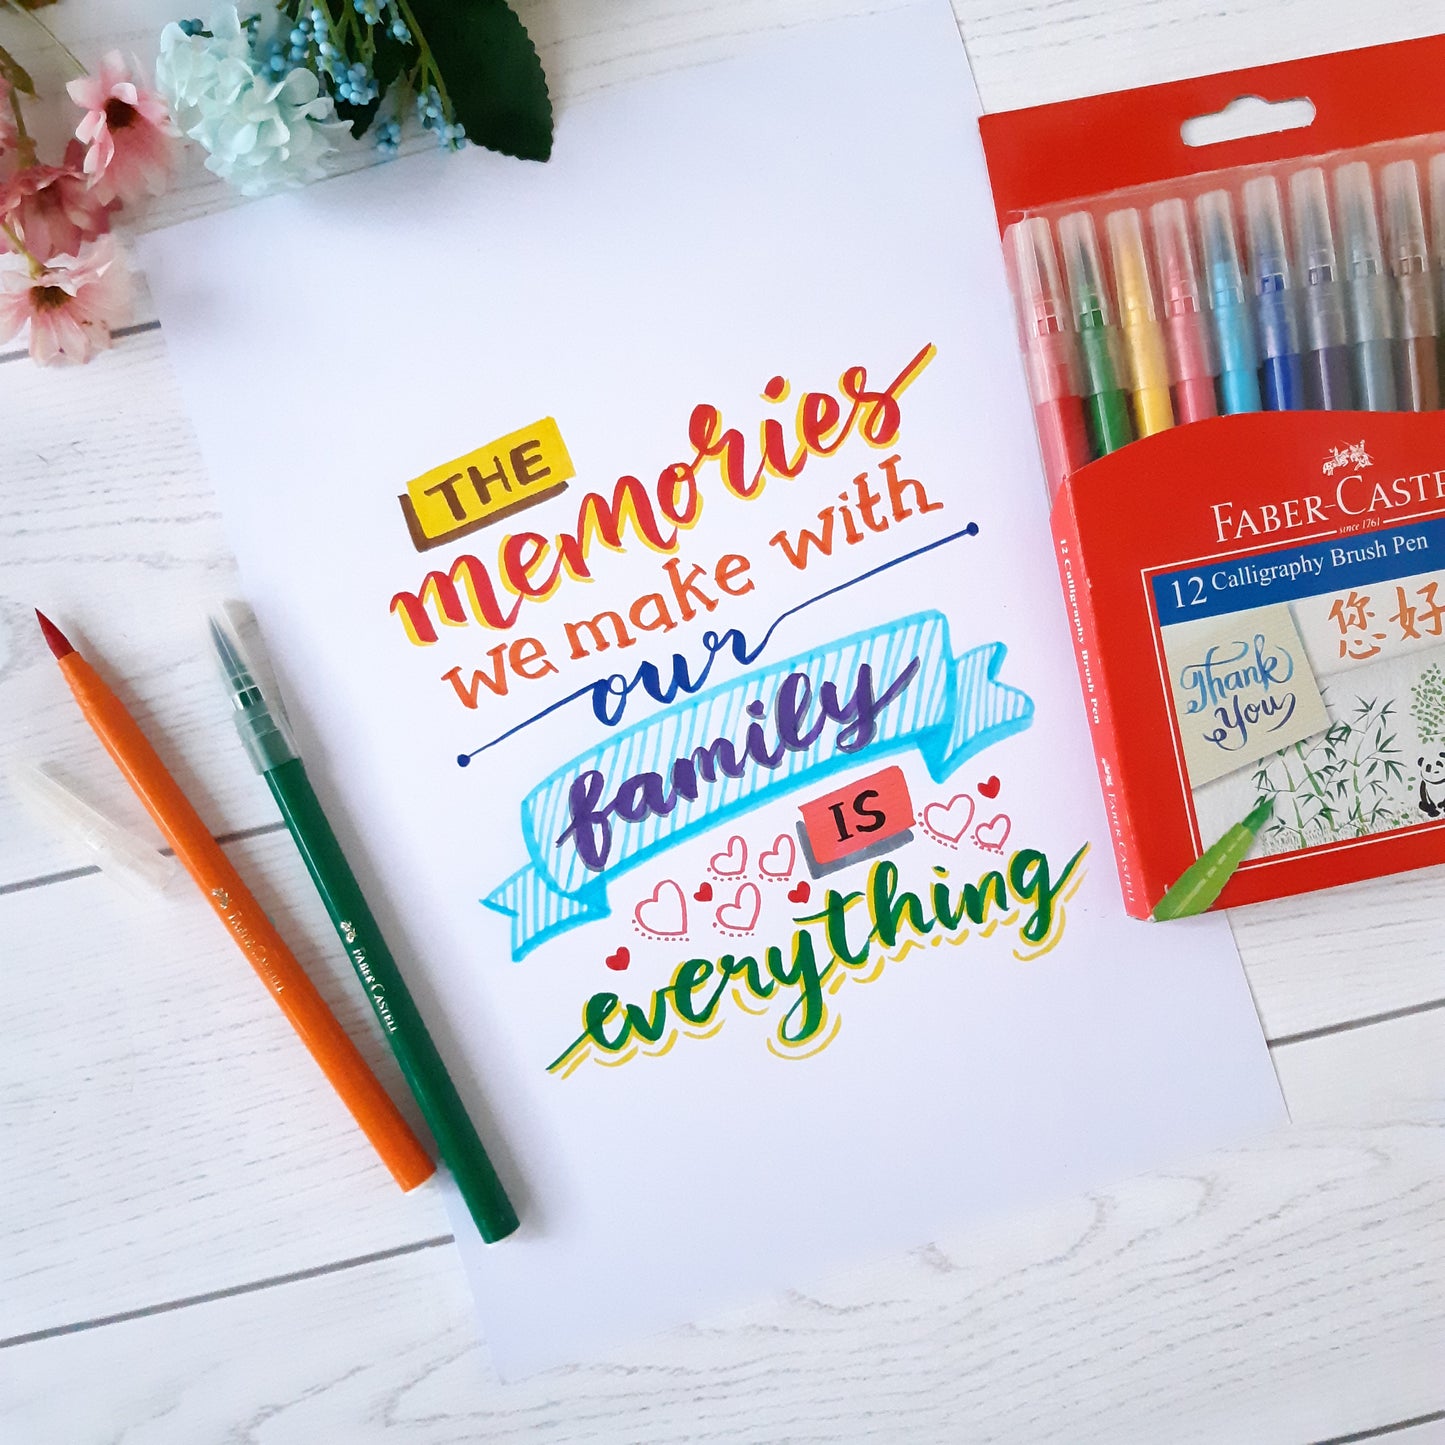 THE
memories
we make with
our
family
IS
everything
FABER-CASTELL
FABER CASTELL
FABER-CASTE
since 1761
12 Calligraphy Brush Pen
Thank
You
您好
12 Calligraphy Brush Pen
FABER CASTELL